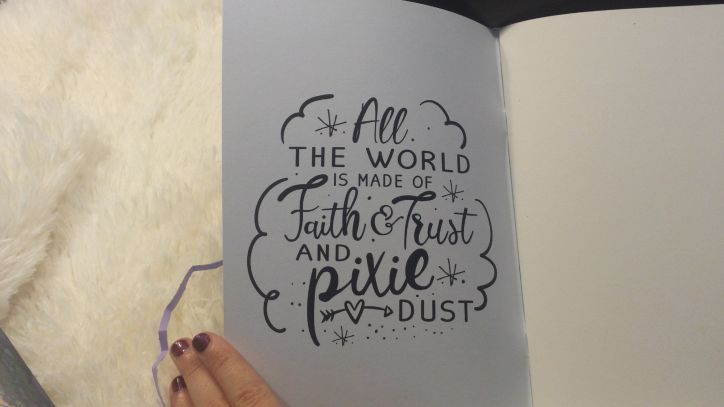 All
THE WORLD
IS MADE OF
Faith & Trust
AND
pixie
DUST